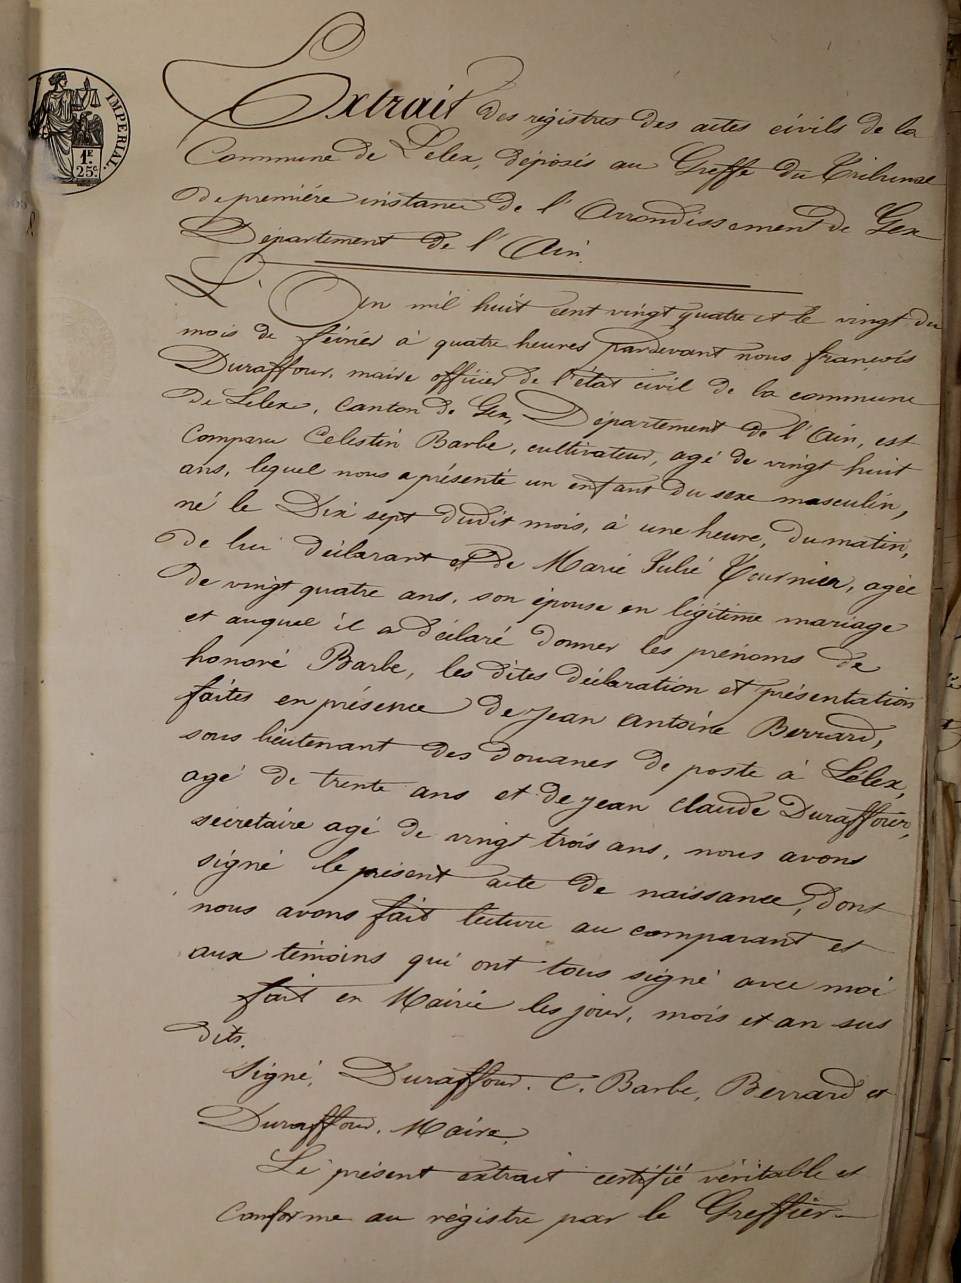 IMPERIAL.
1F
25c
Extrait des régistres des actes civils de la
Commune de Lelex, déposés au Greffe du Tribunal
de première instance de l'Arrondissement de Gex
Département de l'Ain.
L'An mil huit cent vingt quatre et le vingt du
mois de février à quatre heures pardevant nous françois
Duraffour, maire officier de l'état civil de la commune
de Lelex, Canton de Gex, Département de l'Ain, est
Comparu Celestin Barbe, cultivateur, agé de vingt huit
ans, lequel nous a présenté un enfant du sexe masculin,
né le Dix sept dudit mois, à une heure, du matin,
de lui déclarant et de Marie Julie Tournier, agée
de vingt quatre ans, son épouse en légitime mariage
et auquel il a déclaré donner les prénoms de
honoré Barbe, les dites déclaration et présentation
faites en présence de Jean Antoine Berrard,
sous lieutenant des douanes de poste à Lélex,
agé de trente ans et de Jean Claude Duraffour,
secrétaire agé de vingt trois ans, nous avons
signé le présent acte de naissance, dont
nous avons fait lecture au comparant et
aux témoins qui ont tous signé avec moi
fait en Mairie les jour, mois et an sus
dits.
Signé, Duraffour. C. Barbe, Berrard et
Duraffour, Maire.
Le présent extrait certifié véritable et
Conforme au régistre par le Greffier